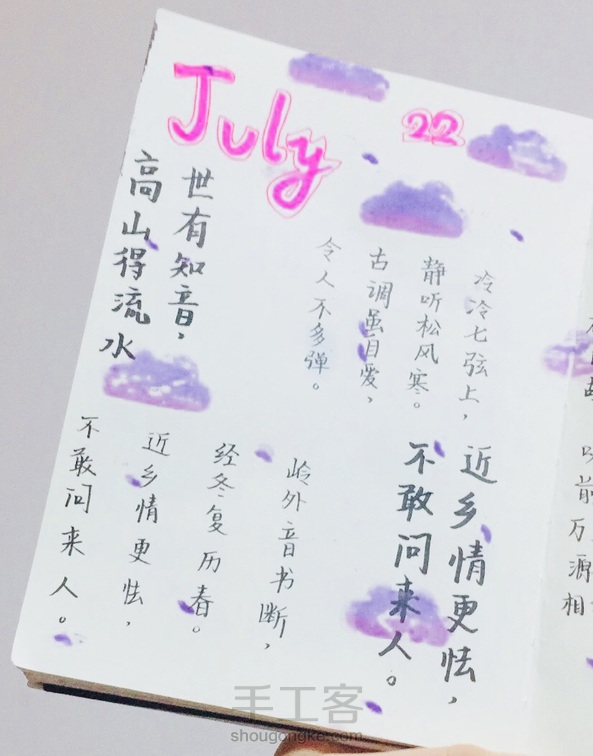 July
22
世有知音，
高山得流水
冷冷七弦上，
静听松风寒。
古调虽自爱，
令人不多弹。
近乡情更怯，
不敢问来人。
岭外音书断，
经冬复历春。
近乡情更怯，
不敢问来人。
前万源相
手工客
shougongke.com